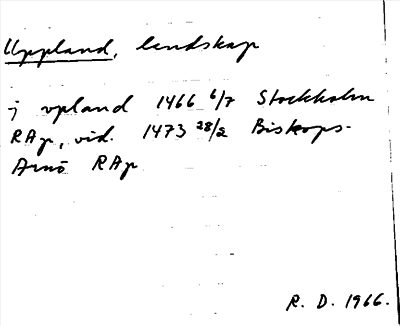 Uppland, landskap
j vpland 1466 6/7 Stockholm
RAp, vid. 1473 28/2 Biskops-
Arnö RAp
R. D. 1966.